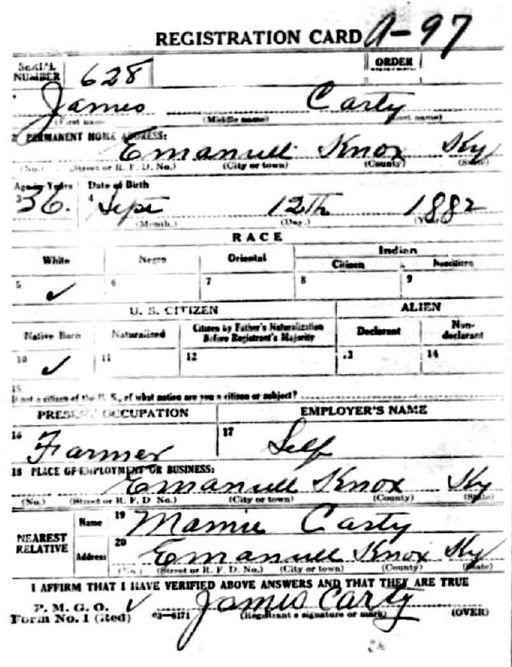 REGISTRATION CARD A-97
SERIAL NUMBER 628 ORDER
James Carty
(First name) (Middle name) (Last name)
2 PERMANENT HOME ADDRESS:
Emanuell Knox Ky
(No.) (Street or R. F. D. No.) (City or town) (County) (State)
Age in Years Date of Birth
3 36. 4 Sept 12th 1882
(Month.) (Day.)
RACE
White Negro Oriental Indian
Citizen Noncitizen
5 ✓ 6 7 8 9
U. S. CITIZEN ALIEN
Native Born Naturalized Citizen by Father's Naturalization Before Registrant's Majority Declarant Non-declarant
10 ✓ 11 12 13 14
15
If not a citizen of the U. S., of what nation are you a citizen or subject?
PRESENT OCCUPATION EMPLOYER'S NAME
16 Farmer 17 Self
18 PLACE OF EMPLOYMENT OR BUSINESS:
Emanuell Knox Ky
(No.) (Street or R. F. D. No.) (City or town) (County) (State)
NEAREST RELATIVE Name 19 Mamie Carty
Address 20 Emanuell Knox Ky
(No.) (Street or R. F. D. No.) (City or town) (County) (State)
I AFFIRM THAT I HAVE VERIFIED ABOVE ANSWERS AND THAT THEY ARE TRUE
P. M. G. O. ✓ James Carty
Form No. 1 (Red) 03-6171 (Registrant's signature or mark) (OVER)